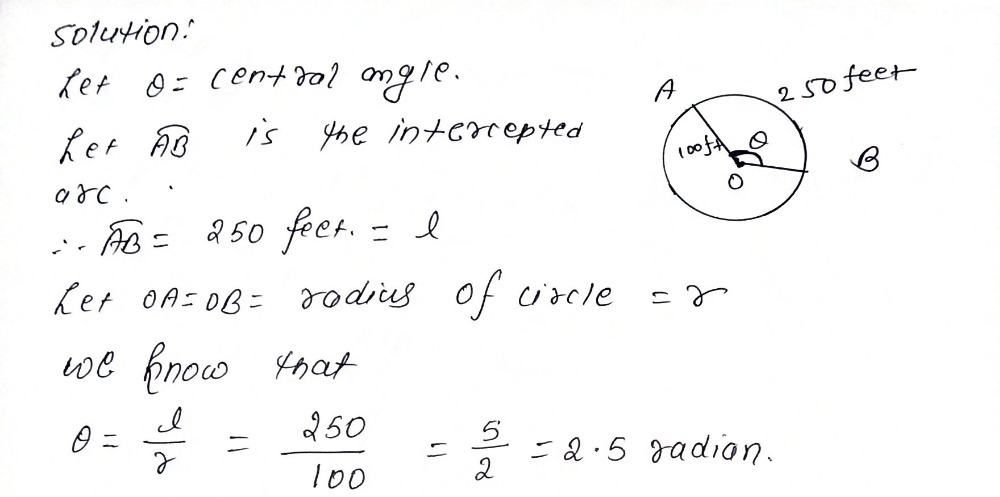 Solution:
Let θ = central angle.
Let A͡B is the intercepted
arc.
∴ A͡B = 250 feet. = l
Let OA = OB = radius of circle = r
we know that
θ = l/r = 250/100 = 5/2 = 2.5 radian.
A
250 feet
100ft
θ
O
B